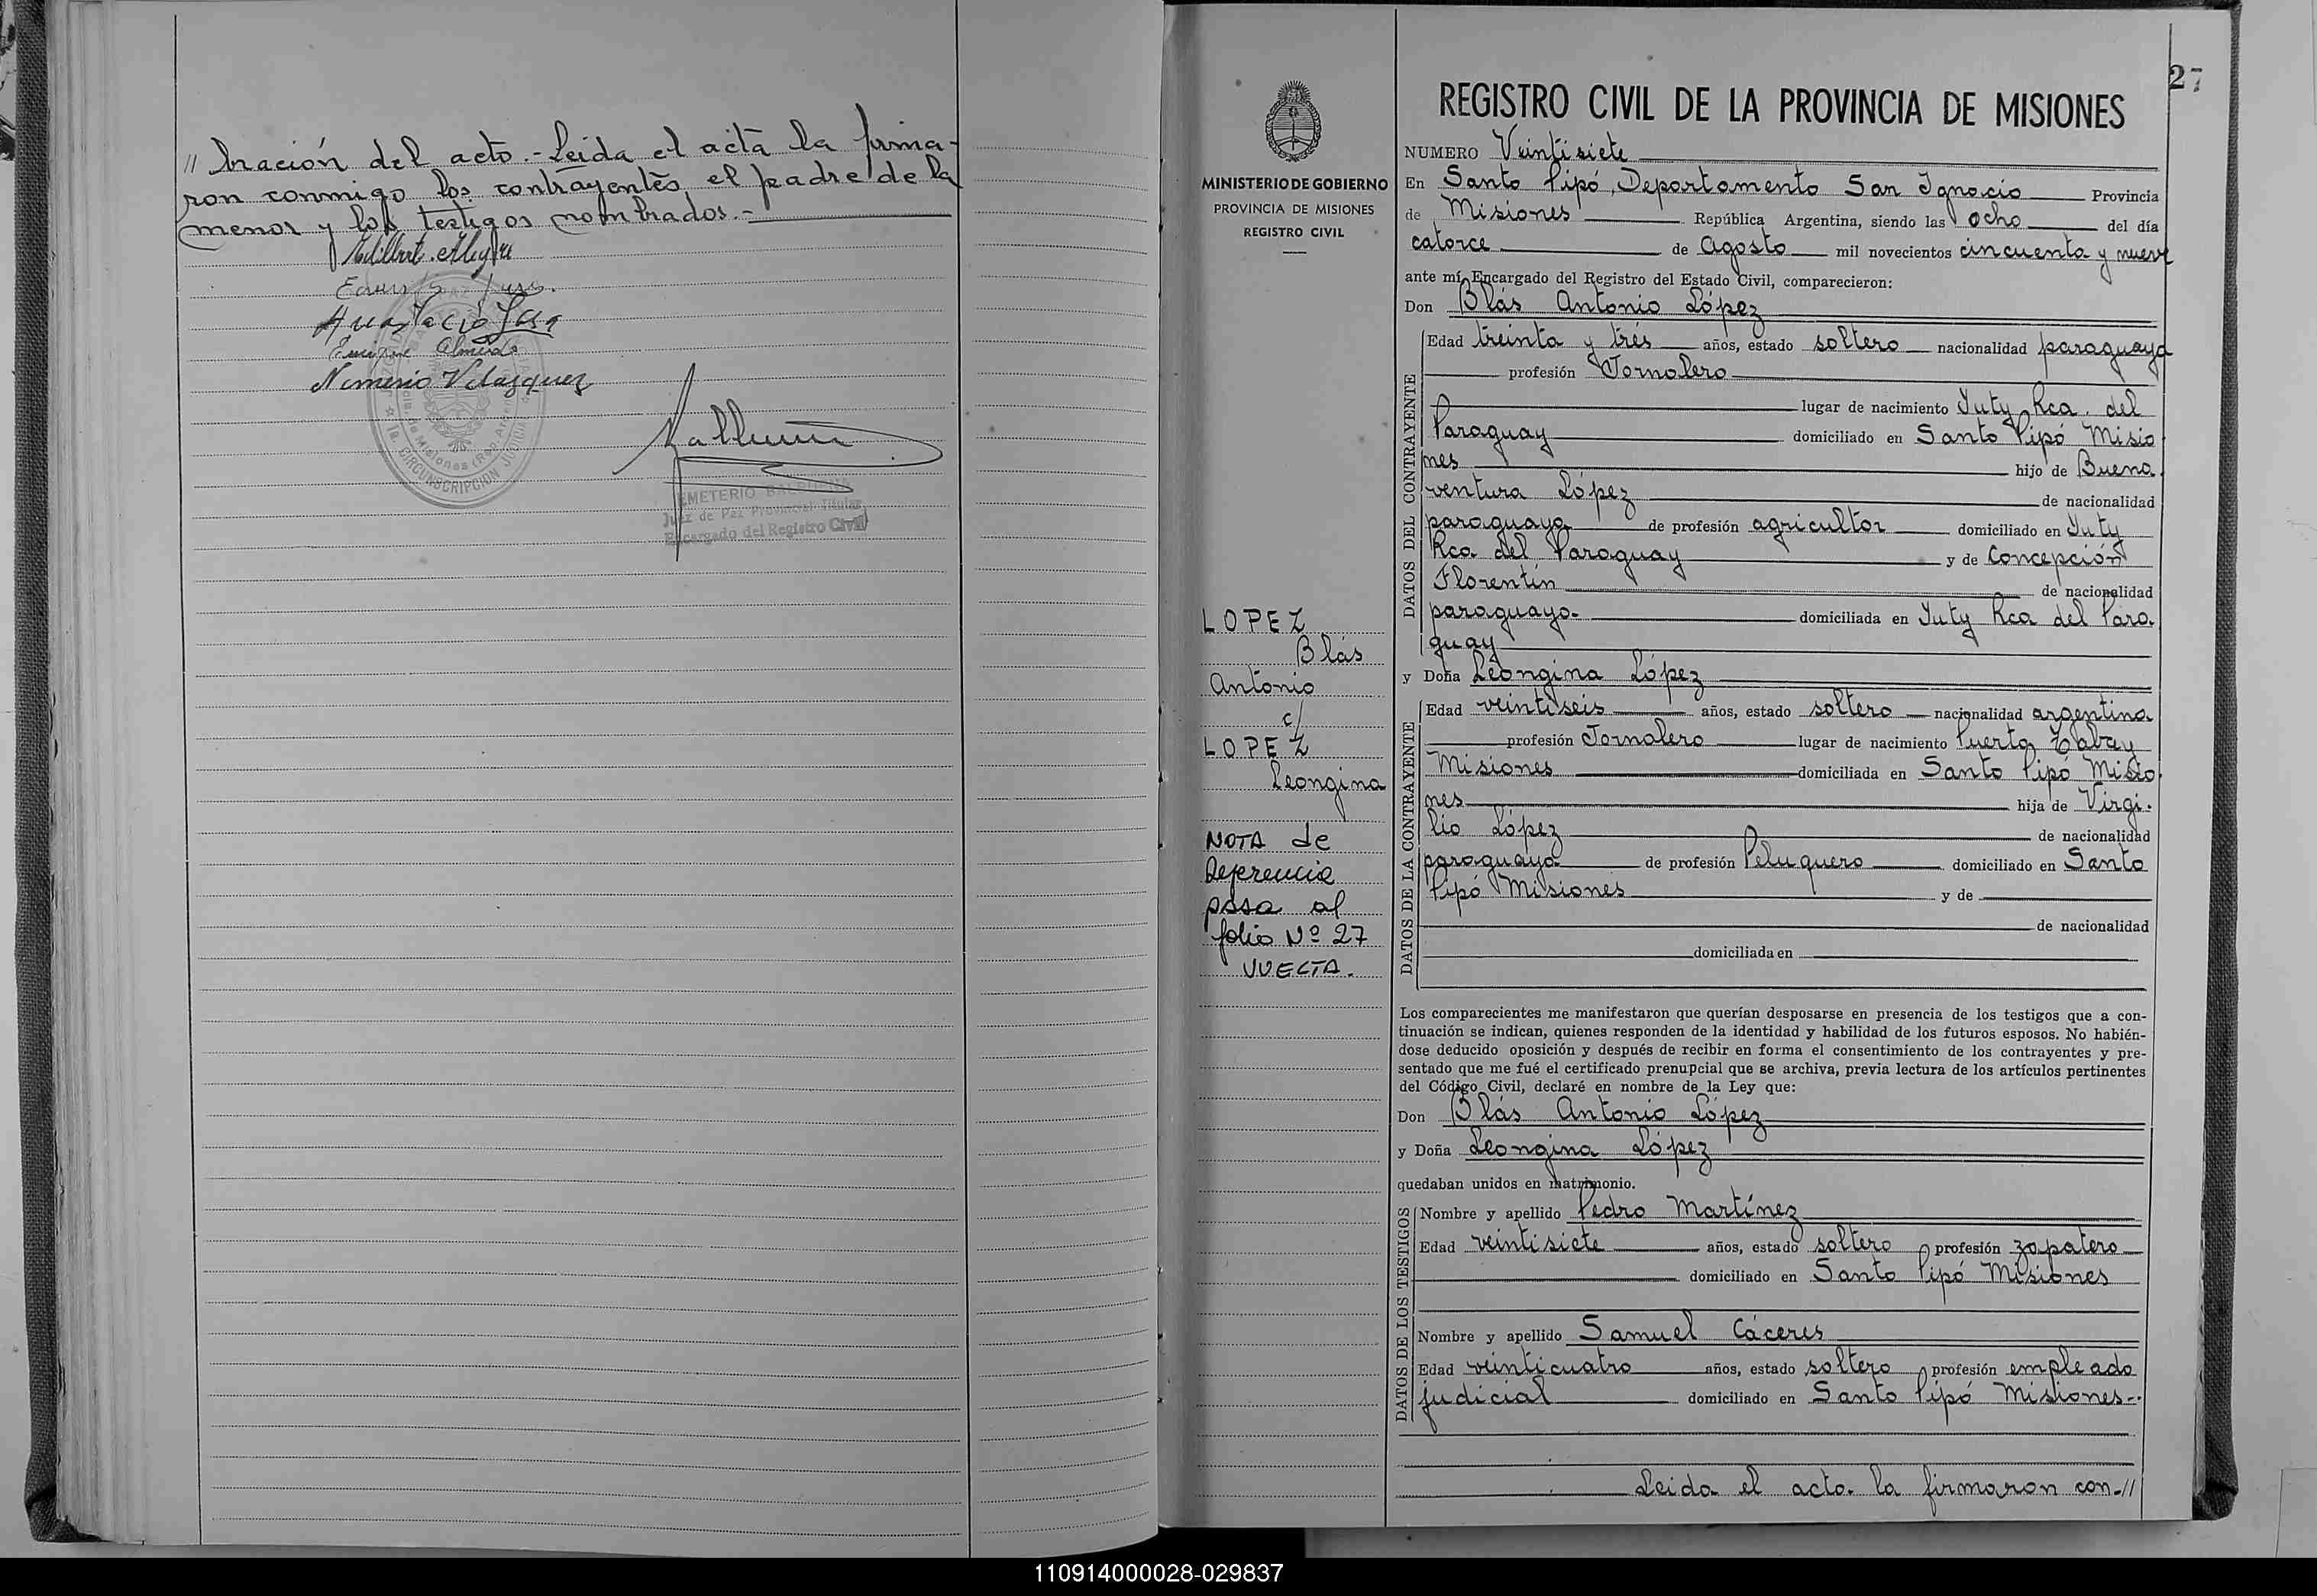 // bración del acto.- Leída el acta la firma-
ron conmigo los contrayentes, el padre de la
menor y los testigos nombrados.-
Anastacio
Enrique Olmedo
Nemesio Velazquez
CIRCUNSCRIPCION JUDICIAL
EMETERIO BALBUENA
Juez de Paz Provincial Titular
Encargado del Registro Civil
27
MINISTERIO DE GOBIERNO
PROVINCIA DE MISIONES
REGISTRO CIVIL
LOPEZ
Blás
Antonio
c/
LOPEZ
Leongina
NOTA de
Referencia
pasa al
folio Nº 27
VUELTA.
REGISTRO CIVIL DE LA PROVINCIA DE MISIONES
NUMERO Veintisiete
En Santo Pipó, Departamento San Ignacio Provincia
de Misiones República Argentina, siendo las ocho del día
catorce de Agosto mil novecientos cincuenta y nueve
ante mí, Encargado del Registro del Estado Civil, comparecieron:
Don Blás Antonio López
DATOS DEL CONTRAYENTE
Edad treinta y trés años, estado soltero nacionalidad paraguaya
profesión Jornalero
lugar de nacimiento Yuty Rca. del
Paraguay domiciliado en Santo Pipó Misio
nes hijo de Buena
ventura López de nacionalidad
paraguaya de profesión agricultor domiciliado en Yuty
Rca del Paraguay y de Concepción
Florentín de nacionalidad
paraguaya- domiciliada en Yuty Rca del Para
guay
y Doña Leongina López
DATOS DE LA CONTRAYENTE
Edad veintiseis años, estado soltero nacionalidad argentina
profesión Jornalero lugar de nacimiento Puerto Tabay
Misiones domiciliada en Santo Pipó Misio
nes hija de Virgi-
lio López de nacionalidad
paraguaya de profesión Peluquero domiciliado en Santo
Pipó Misiones y de
de nacionalidad
domiciliada en
Los comparecientes me manifestaron que querían desposarse en presencia de los testigos que a con-
tinuación se indican, quienes responden de la identidad y habilidad de los futuros esposos. No habién-
dose deducido oposición y después de recibir en forma el consentimiento de los contrayentes y pre-
sentado que me fué el certificado prenupcial que se archiva, previa lectura de los artículos pertinentes
del Código Civil, declaré en nombre de la Ley que:
Don Blás Antonio López
y Doña Leongina López
quedaban unidos en matrimonio.
DATOS DE LOS TESTIGOS
Nombre y apellido Pedro Martínez
Edad veintisiete años, estado soltero profesión zapatero
domiciliado en Santo Pipó Misiones
Nombre y apellido Samuel Cáceres
Edad veinticuatro años, estado soltero profesión empleado
judicial domiciliado en Santo Pipó Misiones-.
Leida el acta la firmaron con-//
110914000028-029837